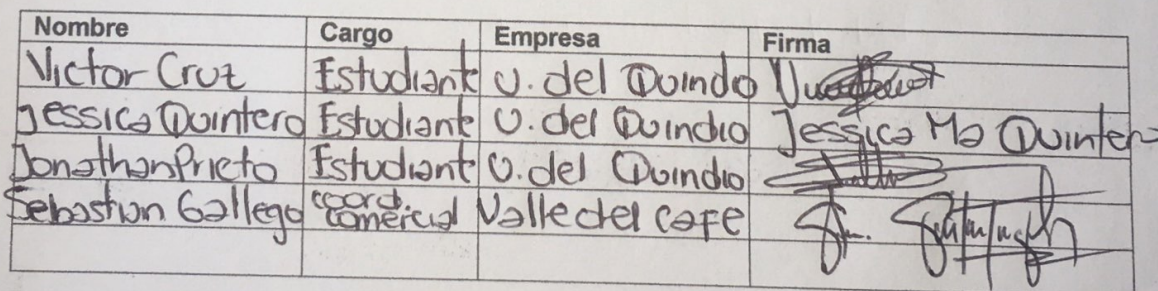 Nombre Cargo Empresa Firma
Victor Cruz Estudiante U. del Quindo
Jessica Quintero Estudiante U. del Quindio Jessica Ma Quintero
Jonathan Prieto Estudiante U. del Quindio
Sebastian Gallego coord. comercial Valle del cafe